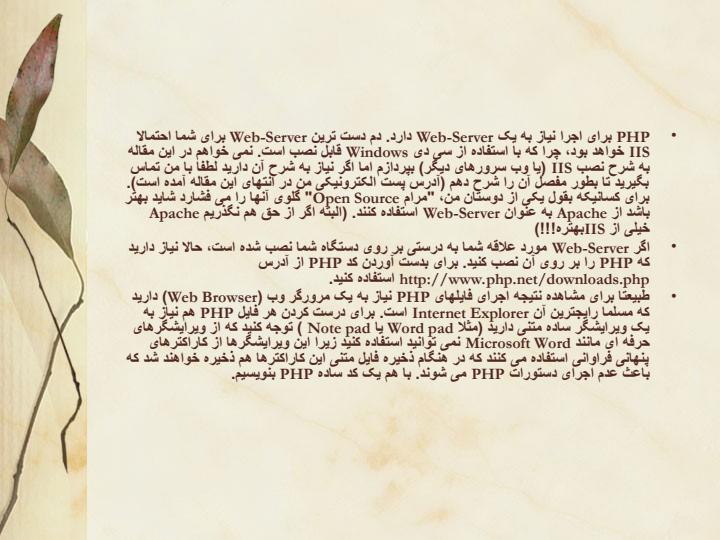 • PHP برای اجرا نیاز به یک Web-Server دارد. دم دست ترین Web-Server برای شما احتمالا
IIS خواهد بود، چرا که با استفاده از سی دی Windows قابل نصب است. نمی خواهم در این مقاله
به شرح نصب IIS (یا وب سرورهای دیگر) بپردازم اما اگر نیاز به شرح آن دارید لطفا با من تماس
بگیرید تا بطور مفصل آن را شرح دهم (آدرس پست الکترونیکی من در انتهای این مقاله آمده است).
برای کسانیکه بقول یکی از دوستان من، "مرام Open Source" گلوی آنها را می فشارد شاید بهتر
باشد از Apache به عنوان Web-Server استفاده کنند. (البته اگر از حق هم نگذریم Apache
خیلی از IISبهتره!!!)
• اگر Web-Server مورد علاقه شما به درستی بر روی دستگاه شما نصب شده است، حالا نیاز دارید
که PHP را بر روی آن نصب کنید. برای بدست آوردن کد PHP از آدرس
http://www.php.net/downloads.php استفاده کنید.
• طبیعتا برای مشاهده نتیجه اجرای فایلهای PHP نیاز به یک مرورگر وب (Web Browser) دارید
که مسلما رایجترین آن Internet Explorer است. برای درست کردن هر فایل PHP هم نیاز به
یک ویرایشگر ساده متنی دارید (مثلا Word pad یا Note pad ) توجه کنید که از ویرایشگرهای
حرفه ای مانند Microsoft Word نمی توانید استفاده کنید زیرا این ویرایشگرها از کاراکترهای
پنهانی فراوانی استفاده می کنند که در هنگام ذخیره فایل متنی این کاراکترها هم ذخیره خواهند شد که
باعث عدم اجرای دستورات PHP می شوند. با هم یک کد ساده PHP بنویسیم.